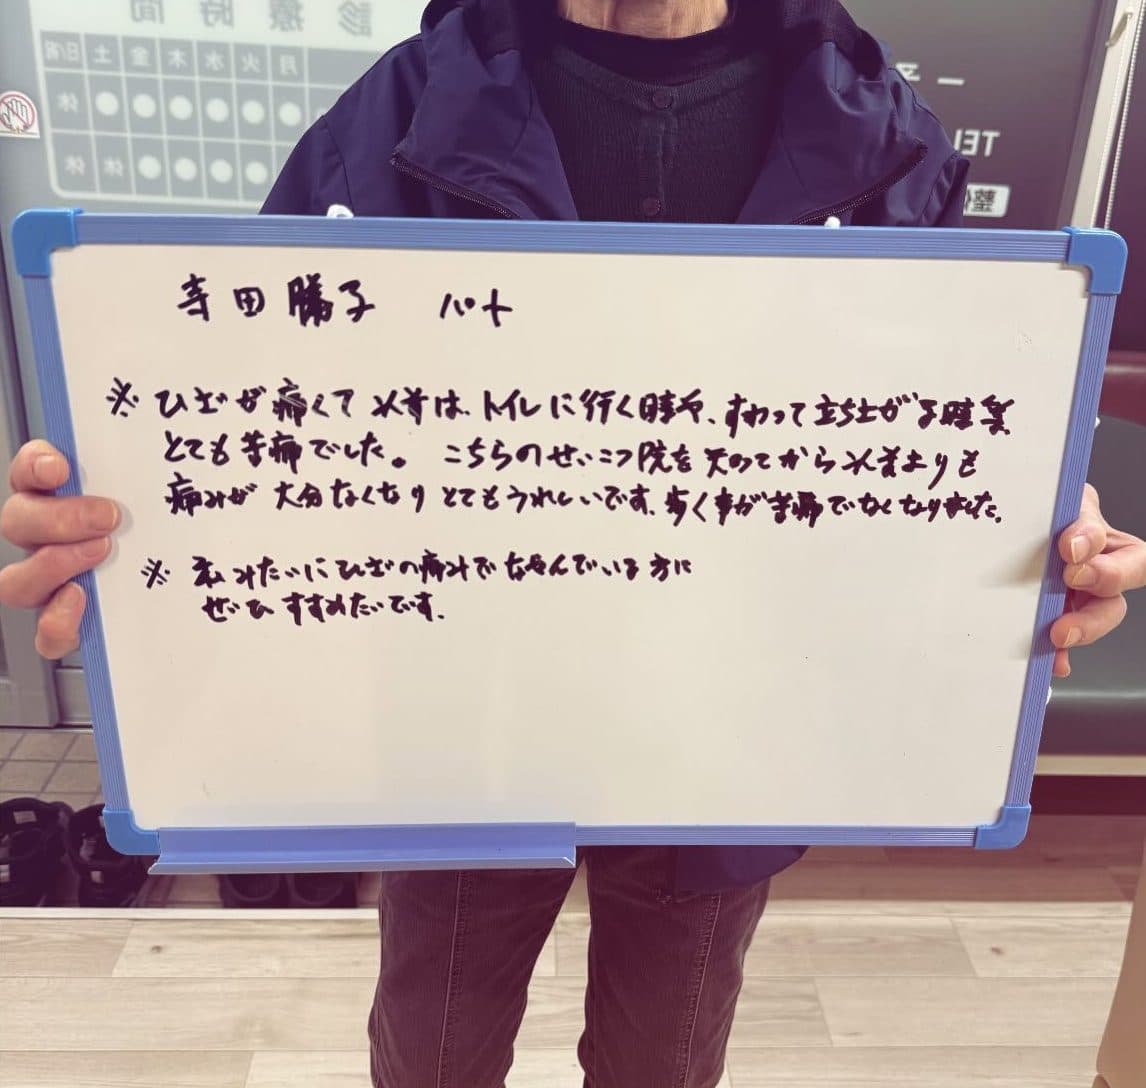 診療時間
日/祝 土 金 木 水 火 月
休 ● ● ● ● ● ●
休 休 ● ● ● ●
TEL
整
寺田勝子 パート
※ ひざが痛くて以前は、トイレに行く時や、すわって立ち上がる時等
とても苦痛でした。 こちらのせいこつ院を知ってから以前よりも
痛みが 大分なくなり とてもうれしいです。歩く事が苦痛でなくなりました。
※ 私みたいにひざの痛みで なやんでいる 方に
ぜひ すすめたいです。